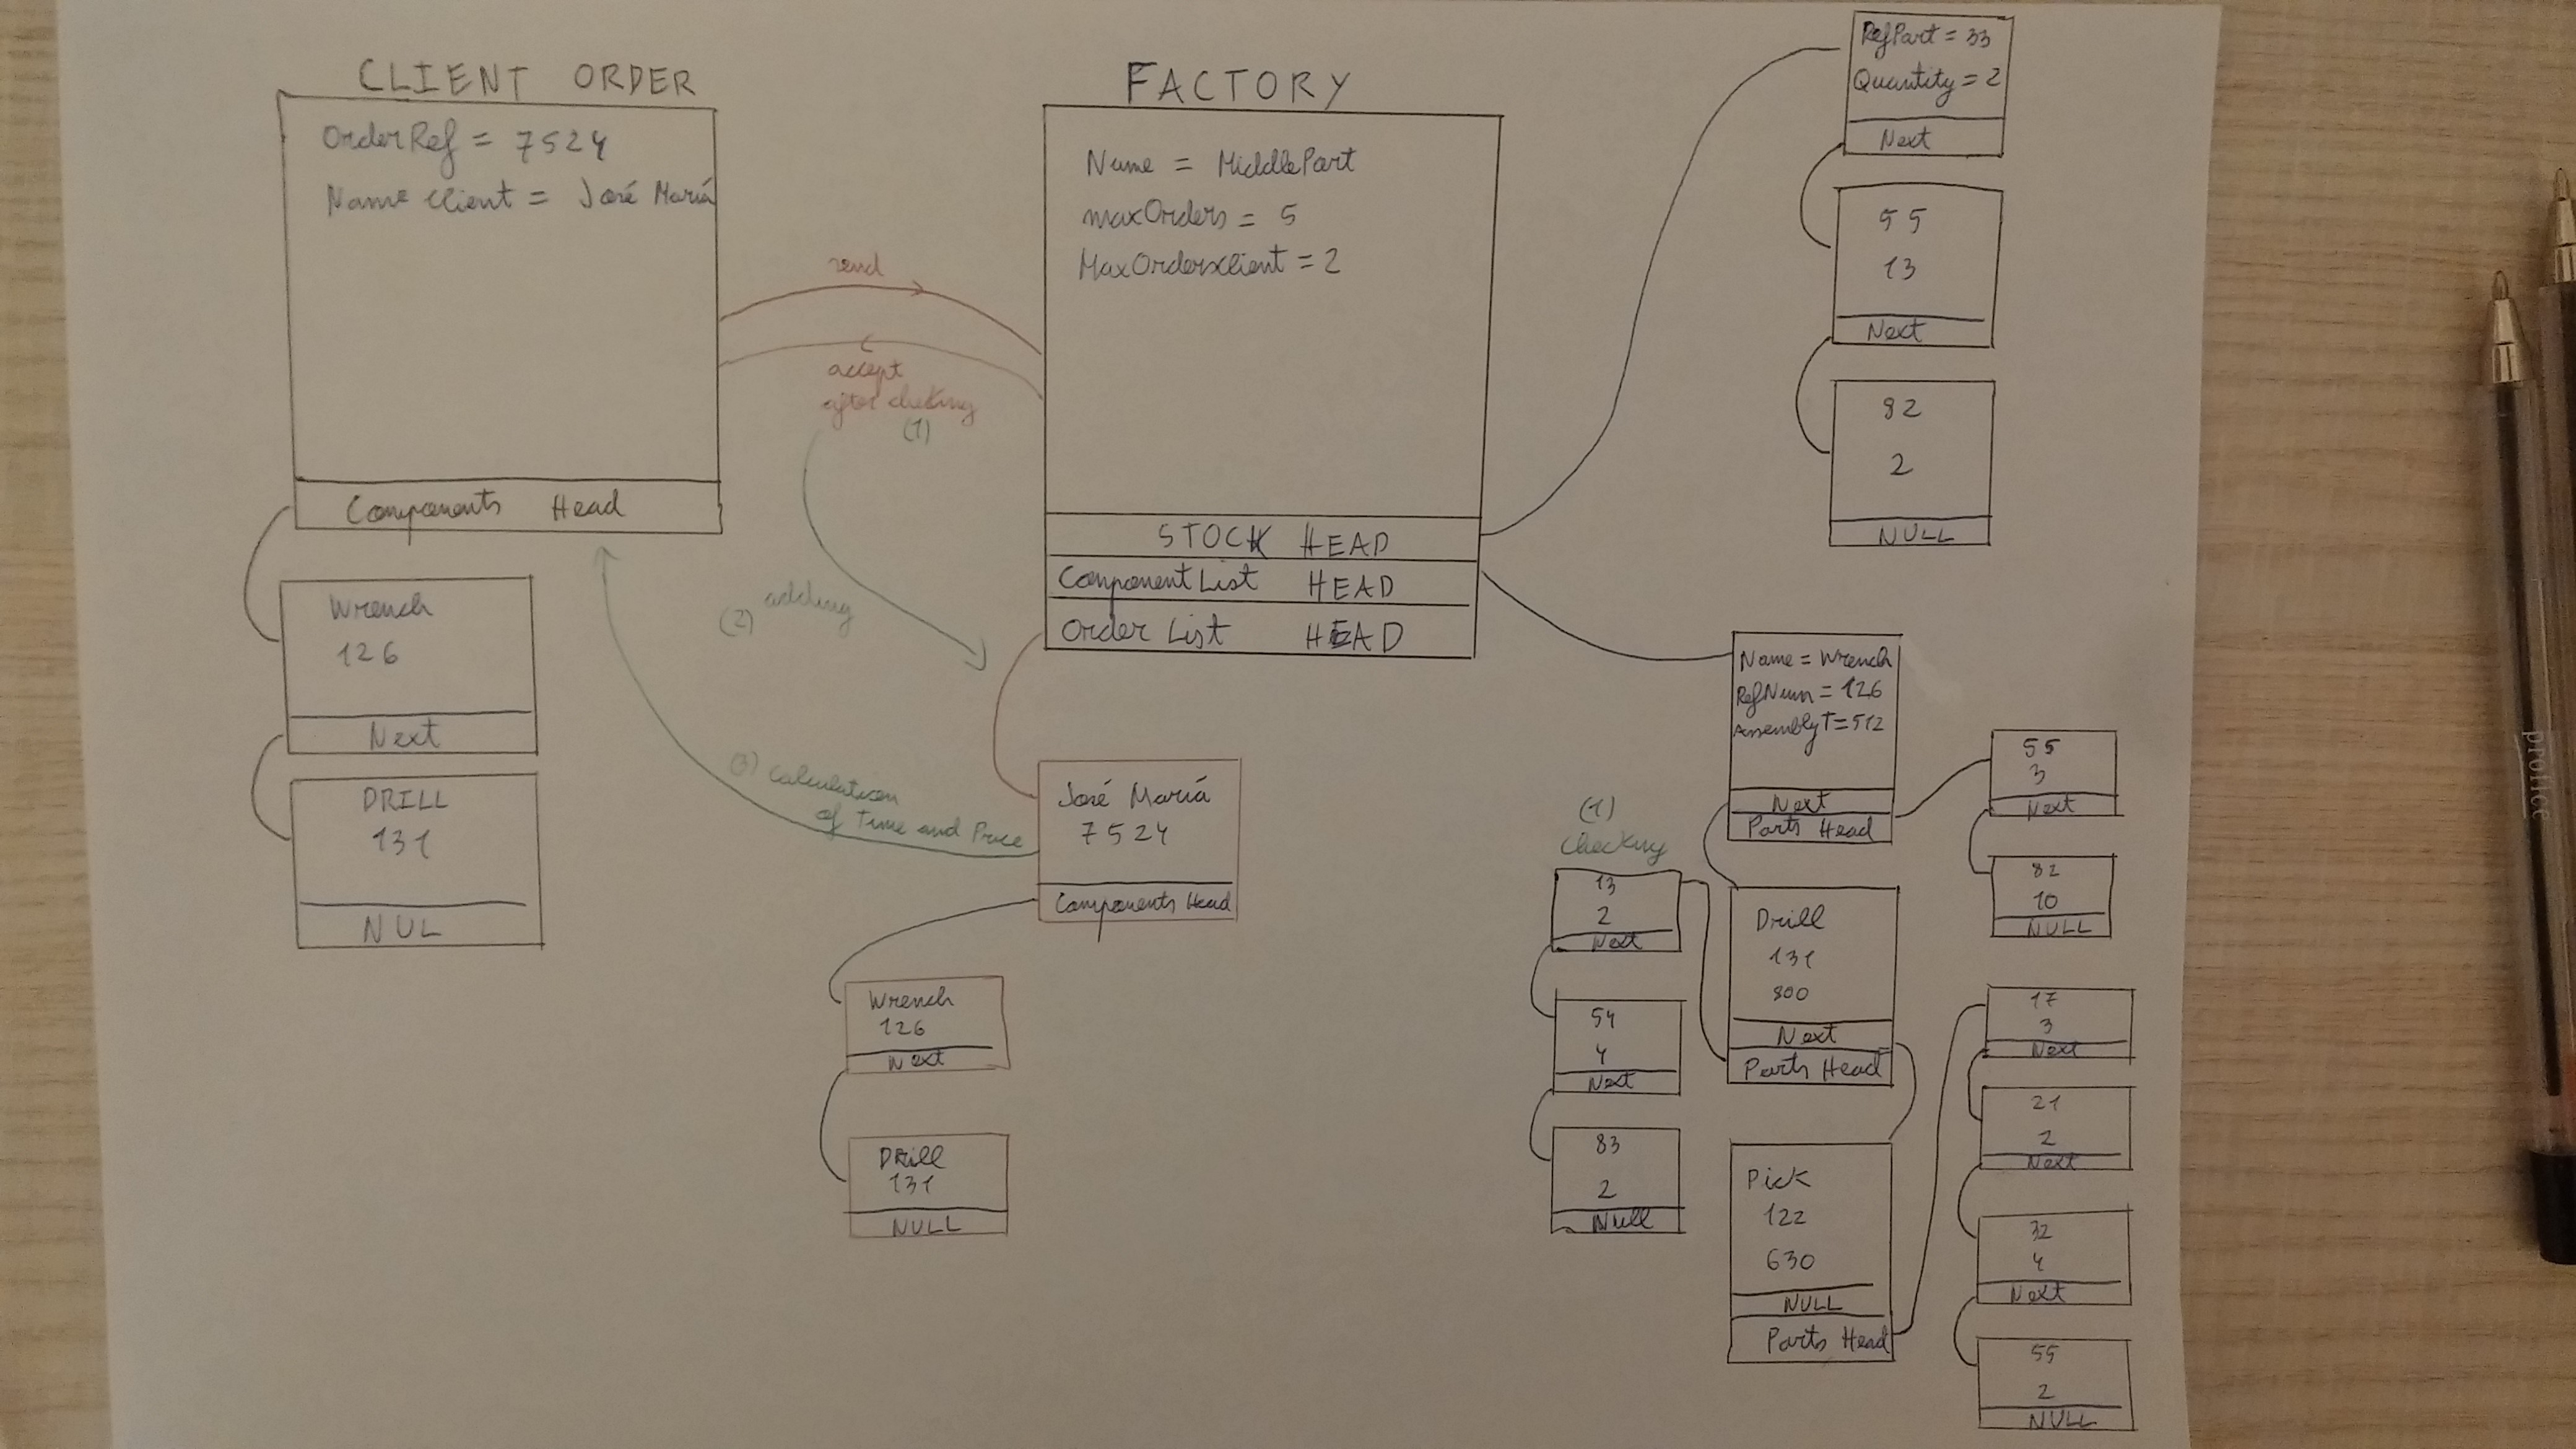 CLIENT ORDER
OrderRef = 7524
Name client = José María
Components Head
Wrench
126
Next
DRILL
131
NUL
send
accept
after checking
(1)
(2) adding
(3) Calculation
of Time and Price
FACTORY
Name = MiddlePart
maxOrders = 5
MaxOrdersxclient = 2
STOCK HEAD
ComponentList HEAD
Order List HEAD
José María
7524
Components Head
Wrench
126
Next
Drill
131
NULL
RefPart = 33
Quantity = 2
Next
55
13
Next
82
2
NULL
Name = Wrench
RefNum = 126
AssemblyT = 512
Next
Parts Head
55
3
Next
82
10
NULL
(1)
Checking
13
2
Next
54
4
Next
83
2
Null
Drill
131
800
Next
Parts Head
Pick
122
630
NULL
Parts Head
17
3
Next
21
2
Next
32
4
Next
55
2
NULL